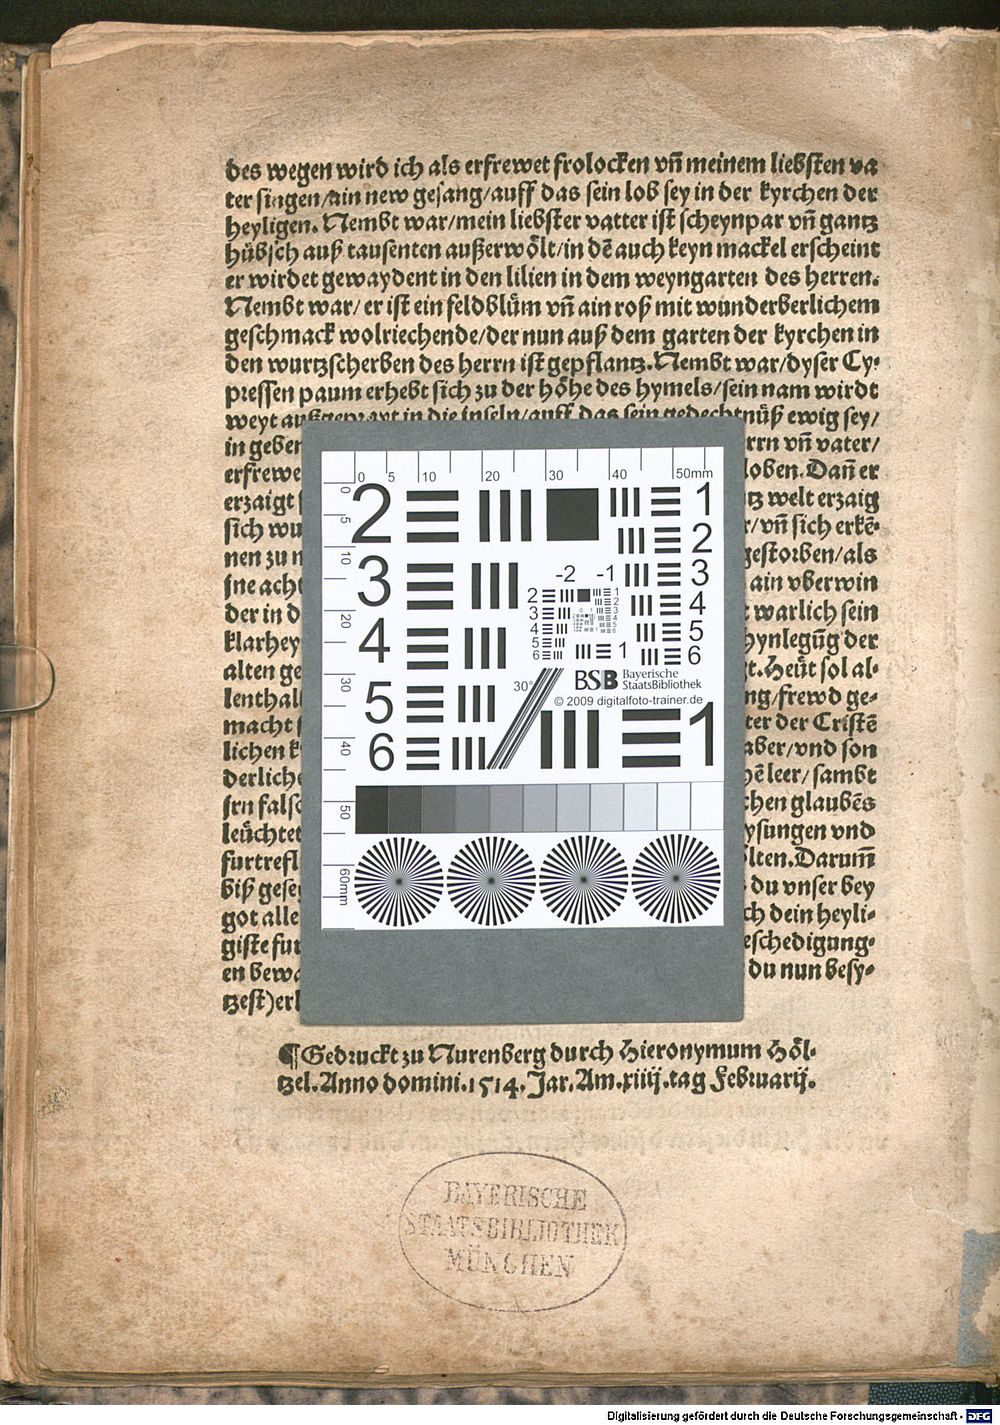 des wegen wird ich als erfrewet frolocken vñ meinem liebsten va
ter singen/ain new gesang/auff das sein lob sey in der kyrchen der
heyligen. Nembt war/mein liebster vatter ist scheynpar vñ gantz
hübsch auß tausenten außerwölt/in dē auch keyn mackel erscheint
er wirdet gewaydent in den lilien in dem weyngarten des herren.
Nembt war/er ist ein feldblům vñ ain roß mit wunderberlichem
geschmack wolriechende/der nun auß dem garten der kyrchen in
den wurtzscherben des herrn ist gepflantz. Nembt war/dyser Cy-
pressen paum erhebt sich zu der höhe des hymels/sein nam wirdt
weyt außgeprayt in die inseln/auff das sein gedechtnüß ewig sey/
in geben rrn vñ vater/
erfrewe loben. Dañ er
erzaigt tz welt erzaig
sich wu r/vñ sich erkē-
nen zu n gestorben/als
jne acht ain vberwin
der in d warlich sein
klarhey hynlegūg der
alten ge t. Heüt sol al-
lenthal ng/frewd ge-
macht ter der Cristē
lichen k aber/vnd son
derliche hē leer/sambt
jrn falsc chen glaubēs
leüchtet ysungen vnd
furtrefl lten. Darum̄
biß gese du vnser bey
got alle ch dein heyli-
giste fur eschedigung-
en bewa du nun besy-
tzest) erl
¶ Gedruckt zu Nurenberg durch Hieronymum Höl-
tzel. Anno domini. 1514. Jar. Am. xiiij. tag Februarij.
0 5 10 20 30 40 50mm
0 5 10 20 30 40 50 60mm
2 1
2
3 -2 -1 3
4 4
5
6 1 6
30°
BSB Bayerische
StaatsBibliothek
© 2009 digitalfoto-trainer.de
5
6 1
BAYERISCHE
STAATSBIBLIOTHEK
MÜNCHEN
Digitalisierung gefördert durch die Deutsche Forschungsgemeinschaft - DFG